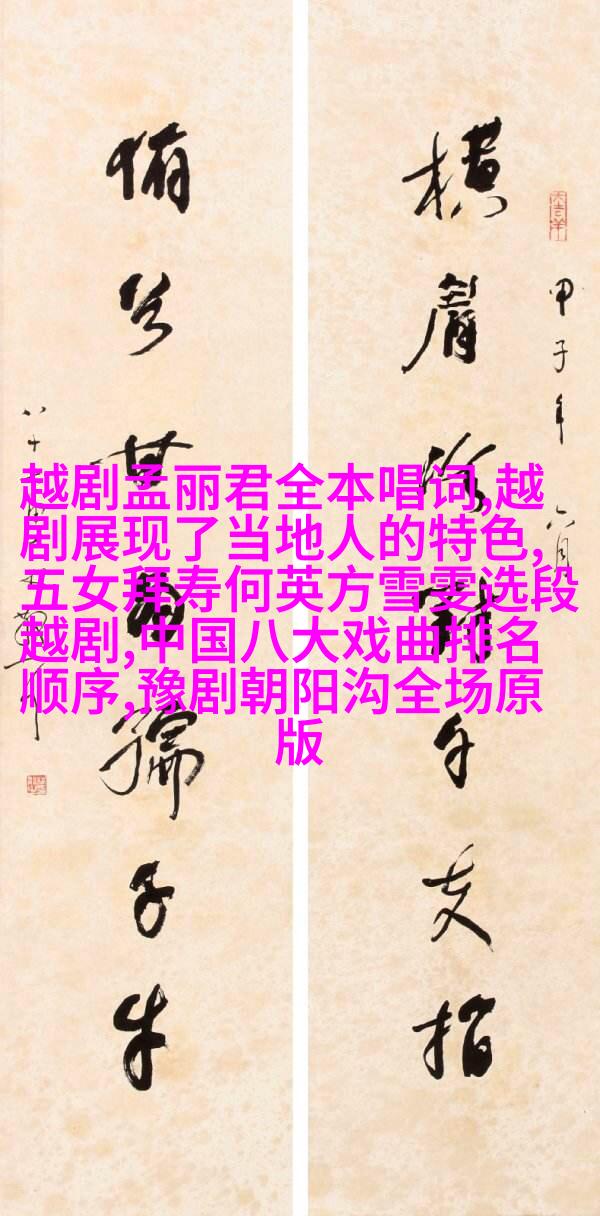 甲子年六月
横眉冷對千夫指
俯首甘為孺子牛
八十
越剧孟丽君全本唱词,越
剧展现了当地人的特色,
五女拜寿何英方雪雯选段
越剧,中国八大戏曲排名
顺序,豫剧朝阳沟全场原
版